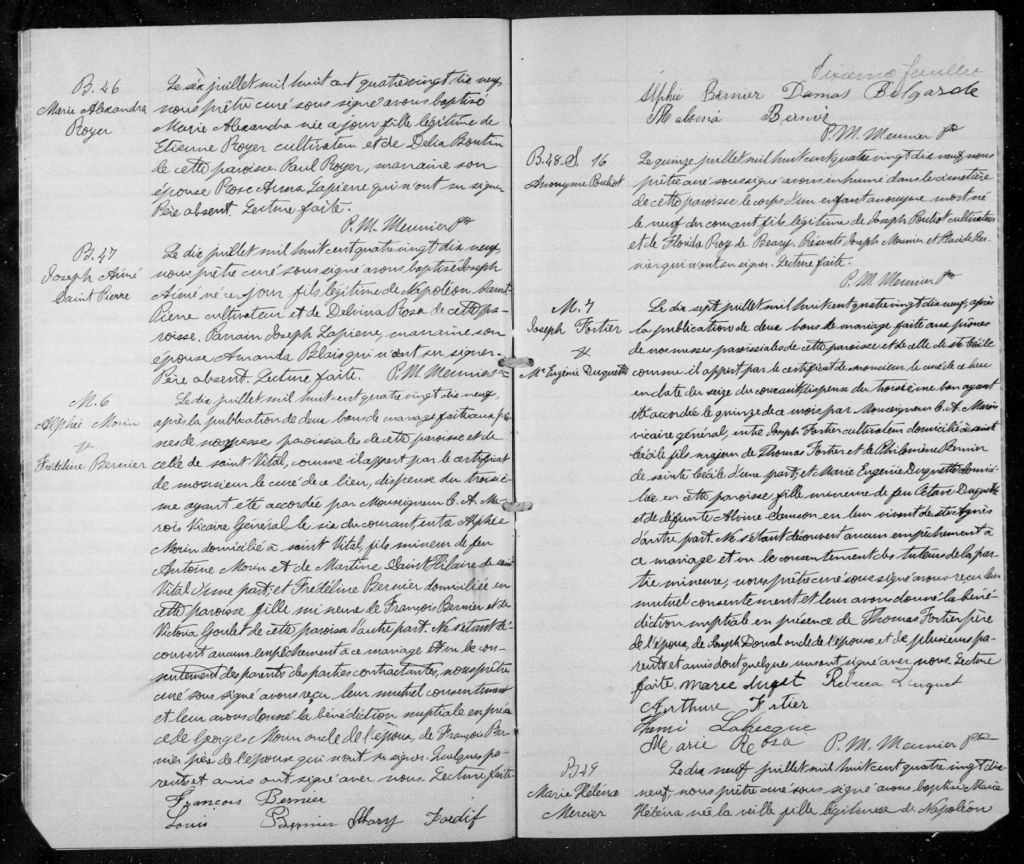 B. 46
Marie Alexandra
Royer
Le six juillet mil huit cent quatre vingt dix neuf,
nous prêtre curé sous signé avons baptisé
Marie Alexandra née ce jour fille légitime de
Etienne Royer cultivateur et de Delia Boutin
de cette paroisse. Paul Royer, marraine son
épouse Rose Anna Lapierre qui n'ont su signer
Père absent. Lecture faite.
P. M. Meunier Ptre
B. 47
Joseph Aimé
Saint Pierre
Le dix juillet mil huit cent quatre vingt dix neuf,
nous prêtre curé sous signé avons baptisé Joseph
Aimé né ce jour fils légitime de Napoléon Saint
Pierre cultivateur et de Delvina Rosa de cette pa-
roisse. Parrain Joseph Lapierre, marraine son
épouse Amanda Blais qui n'ont su signer.
Père absent. Lecture faite. P. M. Meunier Ptre
M. 6
Alphée Morin
&
Fredeline Bernier
Le dix juillet mil huit cent quatre vingt dix neuf,
après la publication de deux bans de mariage faite aux prô-
nes de nos messes paroissiales de cette paroisse et de
celle de saint Vital, comme il appert par le certificat
de monsieur le curé de ce lieu, dispense du troisiè-
me ayant été accordée par Monseigneur C. A. Ma-
rois Vicaire Général le six du courant entre Alphée
Morin domicilié à saint Vital, fils mineur de feu
Antoine Morin et de Martine Saint Hilaire de saint
Vital d'une part; et Fredéline Bernier domiciliée en
cette paroisse fille mineure de François Bernier et de
Victoria Goulet de cette paroisse d'autre part. Ne s'étant dé-
couvert aucun empêchement à ce mariage et vu le con-
sentement des parents des parties contractantes, nous prêtre
curé sous signé avons reçu leur mutuel consentement
et leur avons donné la bénédiction nuptiale en présen
ce de George Morin oncle de l'époux, de François Ber-
nier père de l'épouse qui n'ont su signer. Quelques pa-
rents et amis ont signé avec nous. Lecture faite
François Bernier
Louis Bernier Mary Fordif
Sixième feuillet
Alphé Bernier Damas Belgarde
Malvina Bernier
P. M. Meunier Ptre
B. 48. S. 16
Anonyme Pouliot
Le quinze juillet mil huit cent quatre vingt dix neuf, nous
prêtre curé sous signé avons inhumé dans le cimetière
de cette paroisse le corps d'un enfant anonyme mort né
le neuf du courant fils légitime de Joseph Pouliot cultivateur
et de Florida Roy de Beary. Présents Joseph Meunier et Placide Ber-
nier qui n'ont su signer. Lecture faite.
P. M. Meunier Ptre
M. 7
Joseph Fortier
&
Me Eugénie Duquette
Le dix sept juillet mil huit cent quatre vingt dix neuf, après
la publication de deux bans de mariage faite aux prônes
de nos messes paroissiales de cette paroisse et de celle de ste Cécile
comme il appert par le certificat de monsieur le curé de ce lieu
en date du seize du courant dispense du troisième ban ayant
été accordée le quinze de ce mois par Monseigneur C. A. Marois
vicaire général, entre Joseph Fortier cultivateur domicilié à sainte
Cécile fils majeur de Thomas Fortier et de Philomène Bernier
de sainte Cécile d'une part; et Marie Eugénie Duquette domici-
liée en cette paroisse fille mineure de feu Octave Duquette
et de défunte Alvine Samson en leur vivant de ste Agnès
d'autre part. Ne s'étant découvert aucun empêchement à
ce mariage et vu le consentement des tuteurs de la par-
tie mineure, nous prêtre curé sous signé avons reçu leur
mutuel consentement et leur avons donné la béné-
diction nuptiale en présence de Thomas Fortier père
de l'époux, de Joseph Donal oncle de l'épouse et de plusieurs pa-
rents et amis dont quelques uns ont signé avec nous. Lecture
faite. Marie Duget Rebecca Duquet
Arthure Fortier
Henri Labrecque
Marie Rosa P. M. Meunier Ptre
B. 49
Marie Héléna
Mercier
Le dix neuf juillet mil huit cent quatre vingt dix
neuf, nous prêtre curé sous signé avons baptisé Marie
Héléna née la veille fille légitime de Napoléon